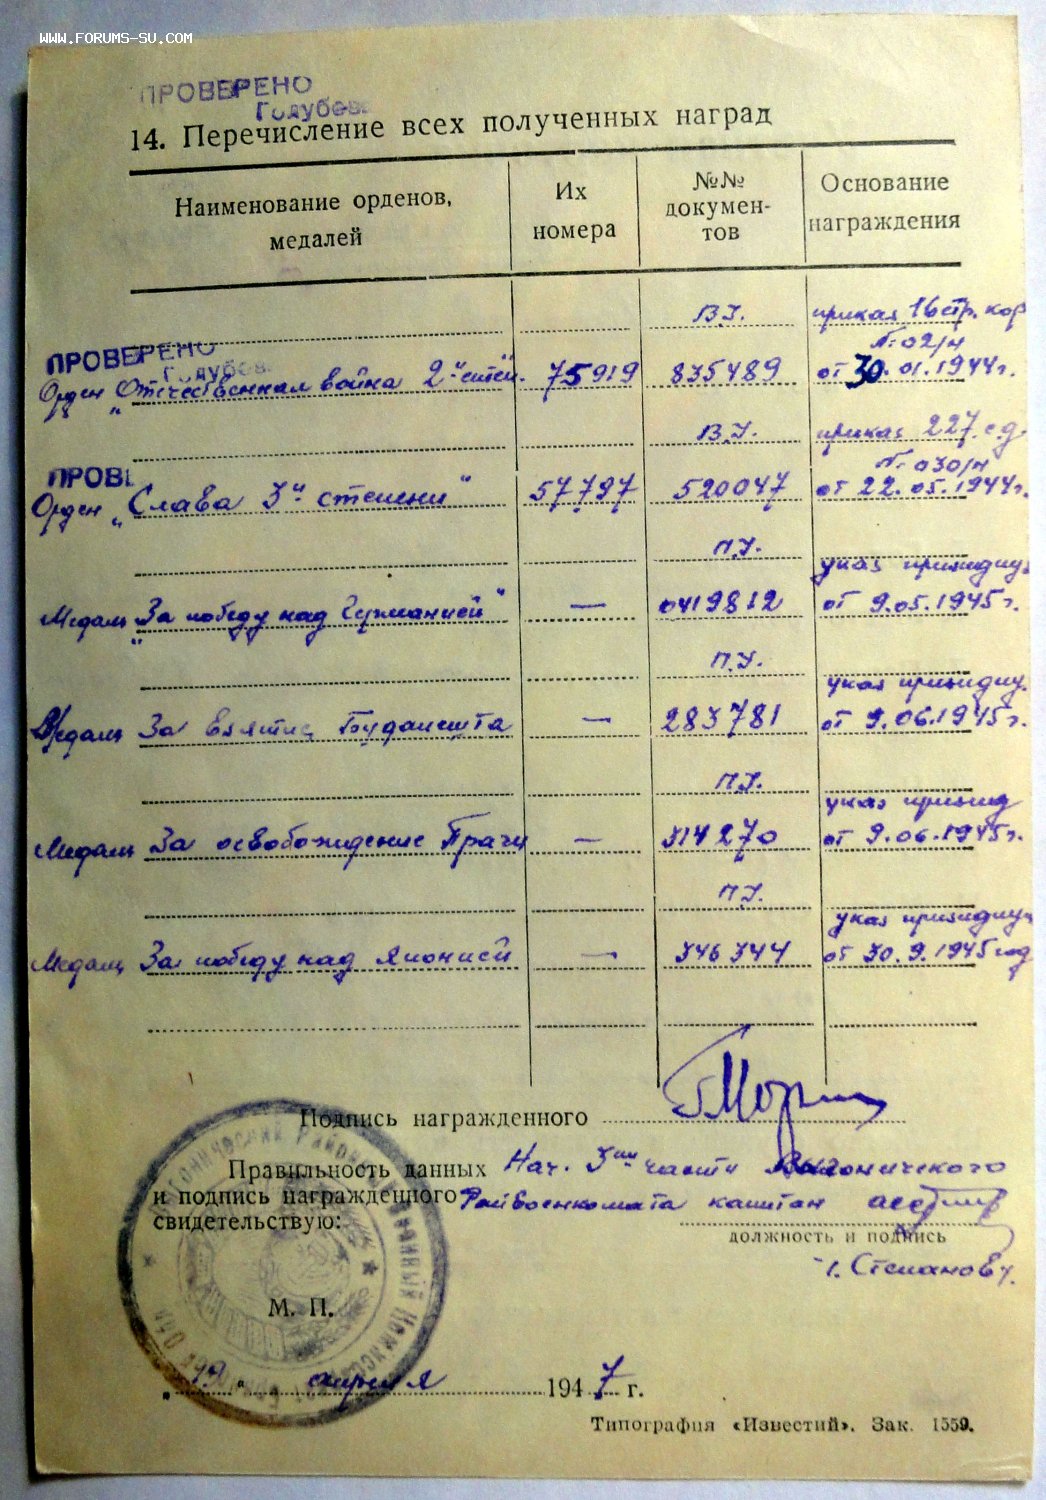 www.forums-su.com
ПРОВЕРЕНО
Голубов
14. Перечисление всех полученных наград
Наименование орденов, медалей
Их номера
№№ докумен-тов
Основание награждения
В.У. приказ 16 стр. кор
№ 02/н
ПРОВЕРЕНО
Голубов
Орден „Отечественная война 2й степ. 75919 835489 от 30.01.1944г.
В.У. приказ 227 с.д.
№ 030/н
ПРОВЕ
Орден „Слава 3й степени" 57797 520047 от 22.05.1944г.
П.У. указ призидиу
Медаль „За победу над Германией" — 0419812 от 9.05.1945г.
П.У. указ призидиу.
Медаль За взятие Будапешта — 283781 от 9.06.1945г.
П.У. указ призид
Медаль За освобождение Праги — 314270 от 9.06.1945г.
П.У. указ призидиу
Медаль За победу над Японией — 346344 от 30.9.1945 год
Подпись награжденного
Правильность данных
и подпись награжденного
свидетельствую:
Нач. 3й части Выгоничского
Райвоенкомата капитан
должность и подпись
М. П.
„19" апреля 1947 г.
Типография «Известий». Зак. 1559.